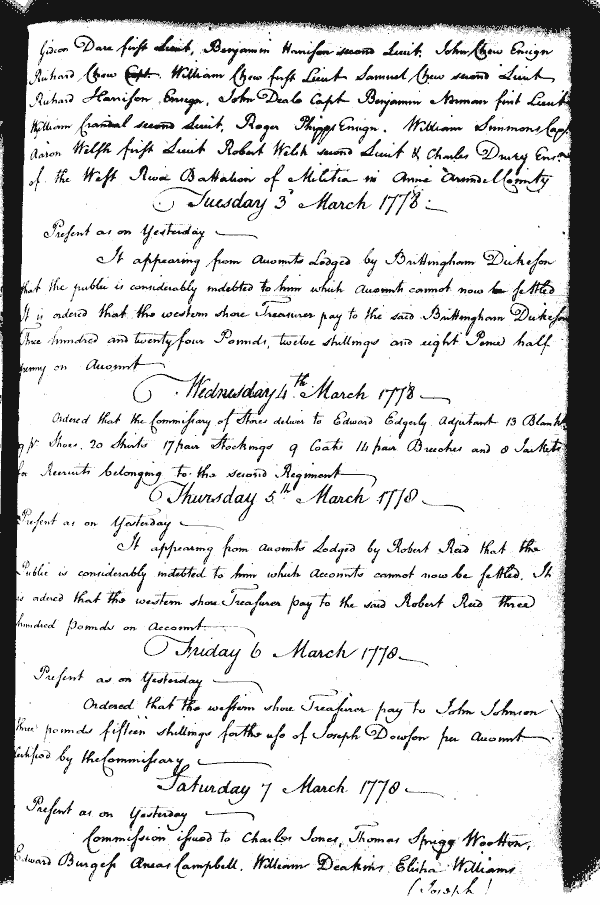 Gideon Dare first Lieut, Benjamin Harrison second Lieut. John Chew Ensign
Richard Chew Capt. William Chew first Lieut Samuel Chew second Lieut
Richard Harrison, Ensign, John Deale Capt Benjamin Norman first Lieut
William Crandal second Lieut, Roger Phipps Ensign. William Simmons Cap.
Aaron Welsh first Lieut Robert Welch second Lieut & Charles Drury Ens.
of the West River Battalion of Militia in Anne Arundel County
Tuesday 3d March 1778
Present as on Yesterday
It appearing from Accounts Lodged by Brittingham Dickeson
that the public is considerably indebted to him which Accounts cannot now be settled
It is ordered that the western shore Treasurer pay to the said Brittingham Dickeson
Three hundred and twenty four Pounds, twelve shillings and eight Pence half
penny on Account
Wednesday 4th March 1778
Ordered that the Commissary of Stores deliver to Edward Edgerly Adjutant 13 Blankts
9 pr Shoes. 20 Shirts 17 pair Stockings 9 Coats 14 pair Breeches and 8 Jackets
for Recruits belonging to the second Regiment
Thursday 5th March 1778
Present as on Yesterday
It appearing from Accounts Lodged by Robert Reid that the
Public is considerably indebted to him which Accounts cannot now be settled. It
is ordered that the western shore Treasurer pay to the said Robert Reid three
hundred pounds on Account
Friday 6 March 1778
Present as on Yesterday
Ordered that the western shore Treasurer pay to John Johnson
three pounds fifteen shillings for the use of Joseph Dowson per Account
Certified by the Commissary
Saturday 7 March 1778
Present as on Yesterday
Commission issued to Charles Jones, Thomas Sprigg Wootton,
Edward Burgess Aneas Campbell. William Deakins Elisha Williams
(Joseph)